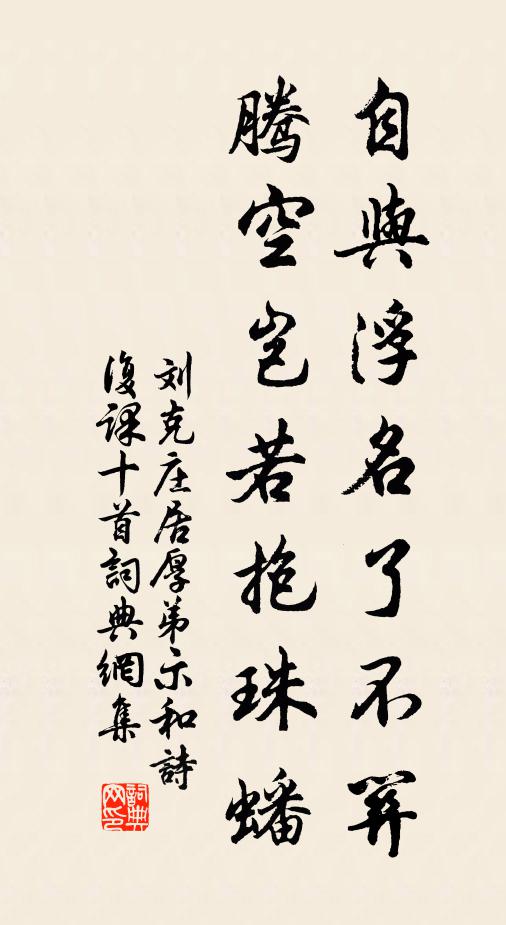 自與浮名了不關
騰空豈若抱珠蟠
刘克庄居厚弟示和詩
復課十首詞典網集
詞典网印